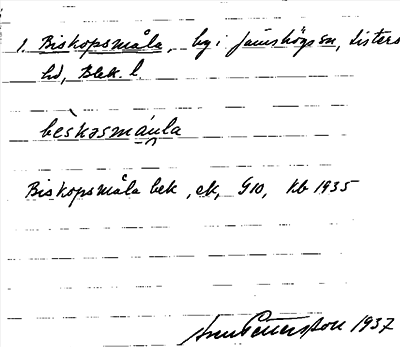 1. Biskopsmåla, by i Jämshögs sn, Listers
hd, Blek. l.
bèskəsmáula
Biskopsmåla bek, ek, G10, Kb 1935
Pettersson 1937